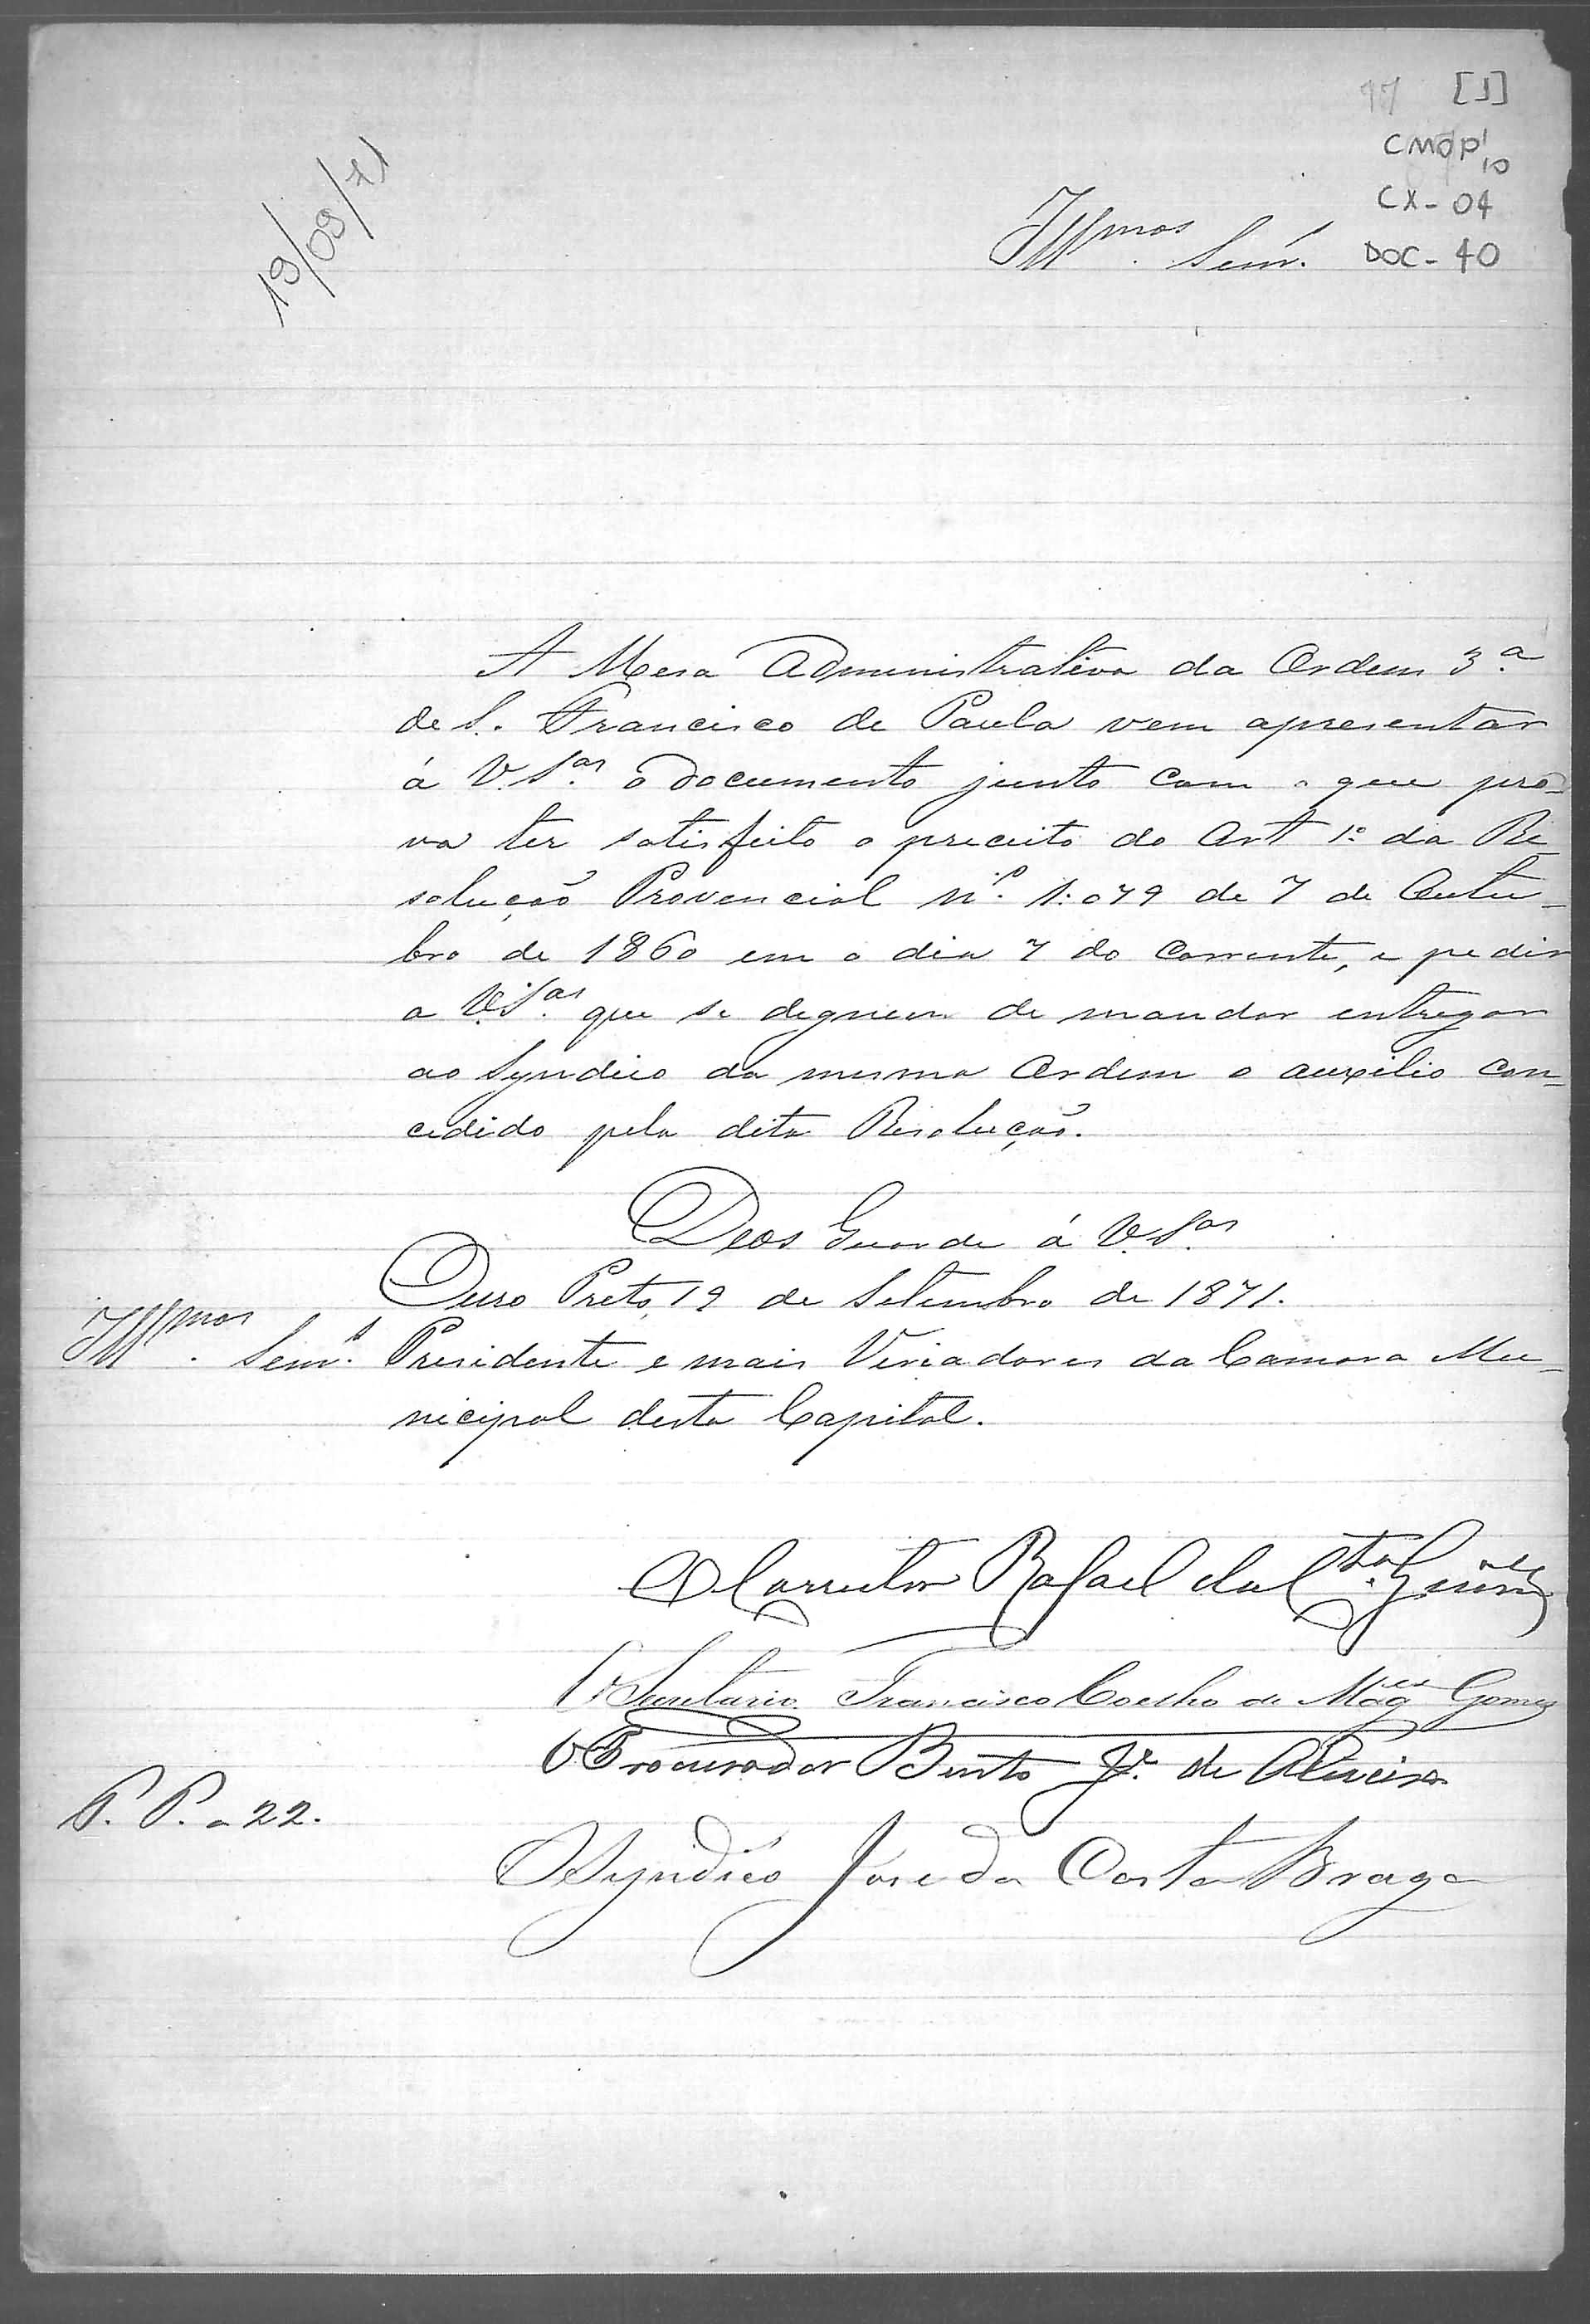 [1]
CMOP
10
CX - 04
DOC - 40
19/09/71
Illmos. Senr.s
A Mesa Administrativa da Ordem 3.a
de S. Francisco de Paula vem apresentar
á V. S.as o documento junto com o que pro-
va ter satisfeito o preceito do Art 1.o da Re-
solução Provencial N.o 1:079 de 7 de Outu-
bro de 1860 em o dia 7 do corrente, e pedir
a V. S.as que se dignem de mandar entregar
ao Syndico da mesma Ordem o auxilio con-
cedido pela dita Resolução.
Deos Guarde á V. S.as
Ouro Preto, 19 de Setembro de 1871.
Illmos. Senr.s Presidente e mais Veriadores da Camara Mu-
nicipal desta Capital.
O Corrector Rafael da C.ta
O Secretario Francisco Coelho de Mag.es Gomes
O Procurador Bento J.e de Oliveira
P. P. a 22.
O Syndico Jose da Costa Braga